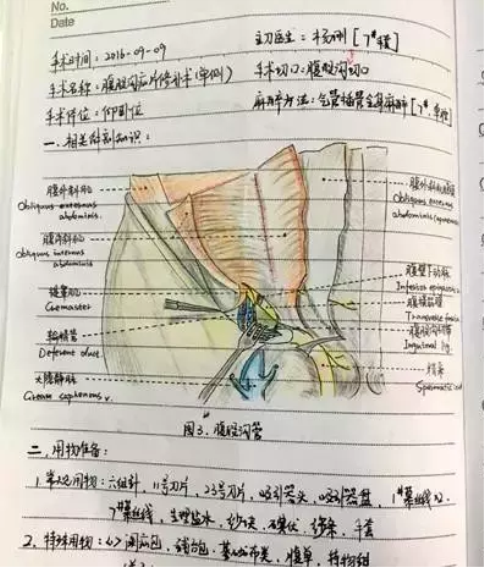 No.
Date
手术时间：2016-09-09
主刀医生：杨刚 [7#手套]
手术名称：腹股沟疝片修补术(单侧)
手术切口：腹股沟切口
手术体位：仰卧位
麻醉方法：气管插管全身麻醉 [7#,单腔]
一.相关解剖知识：
腹外斜肌
Obliquus externus
abdominis.
腹内斜肌
Obliquus internus
abdominis
提睾肌
Cremaster
输精管
Deferent duct
大隐静脉
Great saphenous v.
腹外斜肌腱膜
Obliquus externus
abdominis
腹壁下动脉
Inferior epigastric
腹横筋膜
Transverse fascia
腹股沟韧带
Inguinal lig.
精索
Spermatic cord
图3.腹股沟管
二.用物准备：
1.常规用物：六组针，11号刀片，23号刀片，吸引器头，吸引器盘，1#慕丝线×2，
7#慕丝线，生理盐水，纱块，碘伏，绵条，手套
2.特殊用物：小阑尾包，铺包，基础布类，腹单，特物组